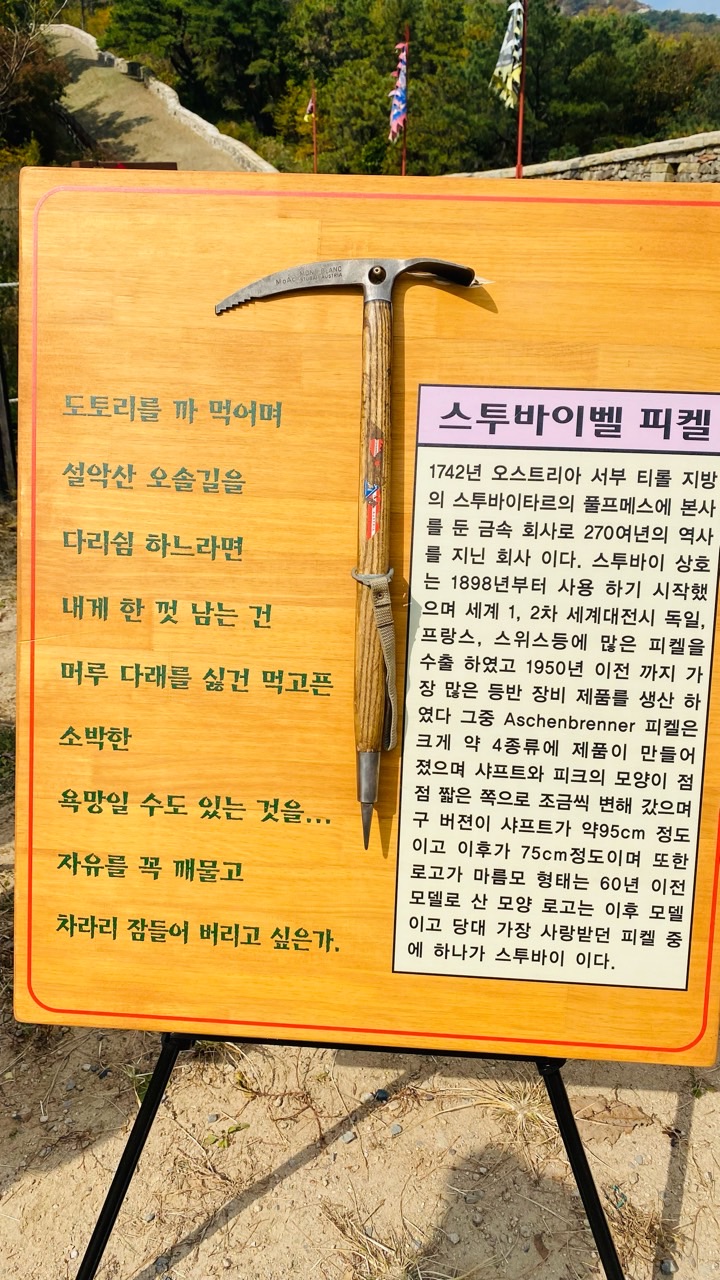 MONT BLANC
도토리를 까 먹어며
설악산 오솔길을
다리쉼 하느라면
내게 한 껏 남는 건
머루 다래를 싫건 먹고픈
소박한
욕망일 수도 있는 것을...
자유를 꼭 깨물고
차라리 잠들어 버리고 싶은가.
스투바이벨 피켈
1742년 오스트리아 서부 티롤 지방
의 스투바이타르의 풀프메스에 본사
를 둔 금속 회사로 270여년의 역사
를 지닌 회사 이다. 스투바이 상호
는 1898년부터 사용 하기 시작했
으며 세계 1, 2차 세계대전시 독일,
프랑스, 스위스등에 많은 피켈을
수출 하였고 1950년 이전 까지 가
장 많은 등반 장비 제품를 생산 하
였다 그중 Aschenbrenner 피켈은
크게 약 4종류에 제품이 만들어
졌으며 샤프트와 피크의 모양이 점
점 짧은 쪽으로 조금씩 변해 갔으며
구 버젼이 샤프트가 약95cm 정도
이고 이후가 75cm정도이며 또한
로고가 마름모 형태는 60년 이전
모델로 산 모양 로고는 이후 모델
이고 당대 가장 사랑받던 피켈 중
에 하나가 스투바이 이다.